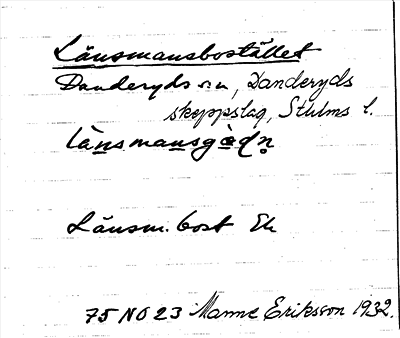 Länsmansbostället
Danderyds sn, Danderyds
skeppslag, Sthlms l.
länsmansgàdn
Länsm. bost Ek
75 NO 23 Manne Eriksson 1932.